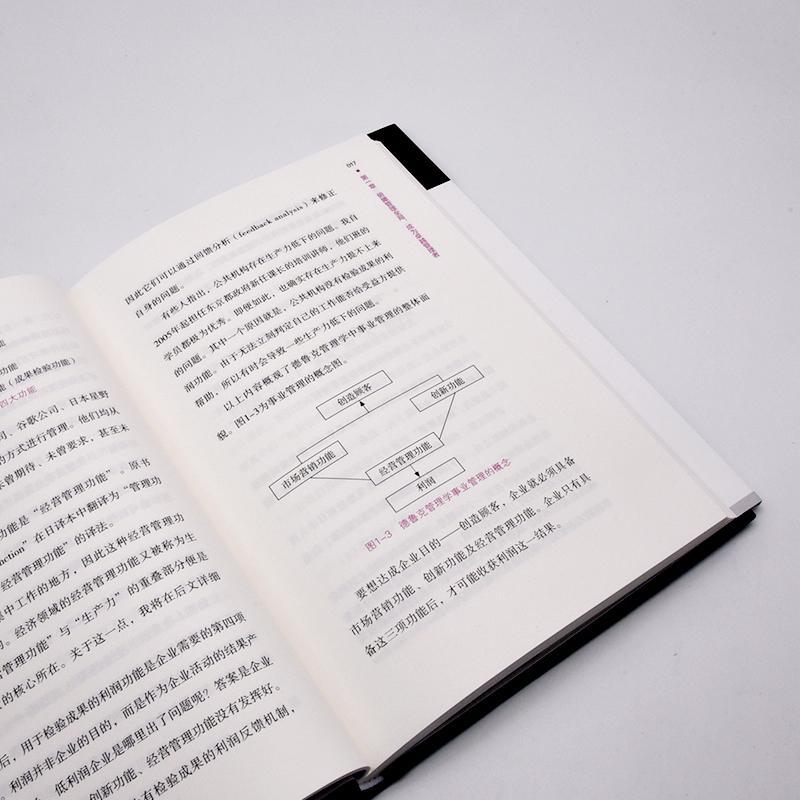 能
功能
能（成果检验功能）
四大功能
司、谷歌公司、日本星野
的方式进行管理。他们均从
未曾期待、未曾要求，甚至未
功能是“经营管理功能”。原书
nction”在日译本中翻译为“管理功
经营管理功能”的译法。
中工作的地方，因此这种经营管理功
的。经济领域的经营管理功能又被称为生
管理功能”与“生产力”的重叠部分便是
的核心所在。关于这一点，我将在后文详细
后，用于检验成果的利润功能是企业需要的第四项
利润并非企业的目的，而是作为企业活动的结果产
低利润企业是哪里出了问题呢？答案是企业
创新功能、经营管理功能没有发挥好。
有检验成果的利润反馈机制，
017
因此它们可以通过回馈分析（feedback analysis）来修正
自身的问题。
有些人指出，公共机构存在生产力低下的问题。我自
2005年起担任东京都政府新任课长的培训讲师，他们班的
学员都极为优秀。即便如此，也确实存在生产力提不上来
的问题。其中一个原因就是，公共机构没有检验成果的利
润功能。由于无法立刻判定自己的工作能否给受益方提供
帮助，所以有时会导致一些生产力低下的问题。
以上内容概观了德鲁克管理学中事业管理的整体面
貌。图1-3为事业管理的概念图。
创造顾客
创新功能
市场营销功能
经营管理功能
利润
图1-3 德鲁克管理学事业管理的概念
要想达成企业目的——创造顾客，企业就必须具备
市场营销功能、创新功能及经营管理功能。企业只有具
备这三项功能后，才可能收获利润这一结果。